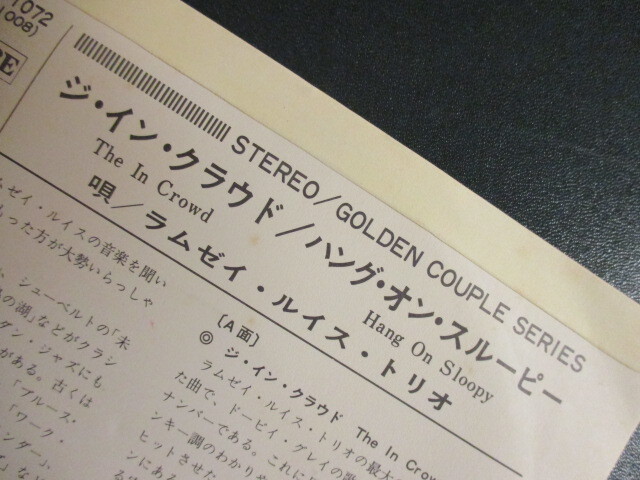 1072
1008)
STEREO/GOLDEN COUPLE SERIES
ジ・イン・クラウド/ハング・オン・スルーピー
The In Crowd
Hang On Sloopy
唄/ラムゼイ・ルイス・トリオ
ムゼイ・ルイスの音楽を聞い
った方が大勢いらっしゃ
シューベルトの「未
の湖」などがクラシ
ダン・ジャズにも
がある。古くは
「ブルース・
「ワーク・
[A面]
◎ ジ・イン・クラウド The In Crow
ラムゼイ・ルイス・トリオの最大の
た曲で、ドービイ・グレイの歌
ナンバーである。これに
ンキー調のわかりや
ヒットさせた
ンにある